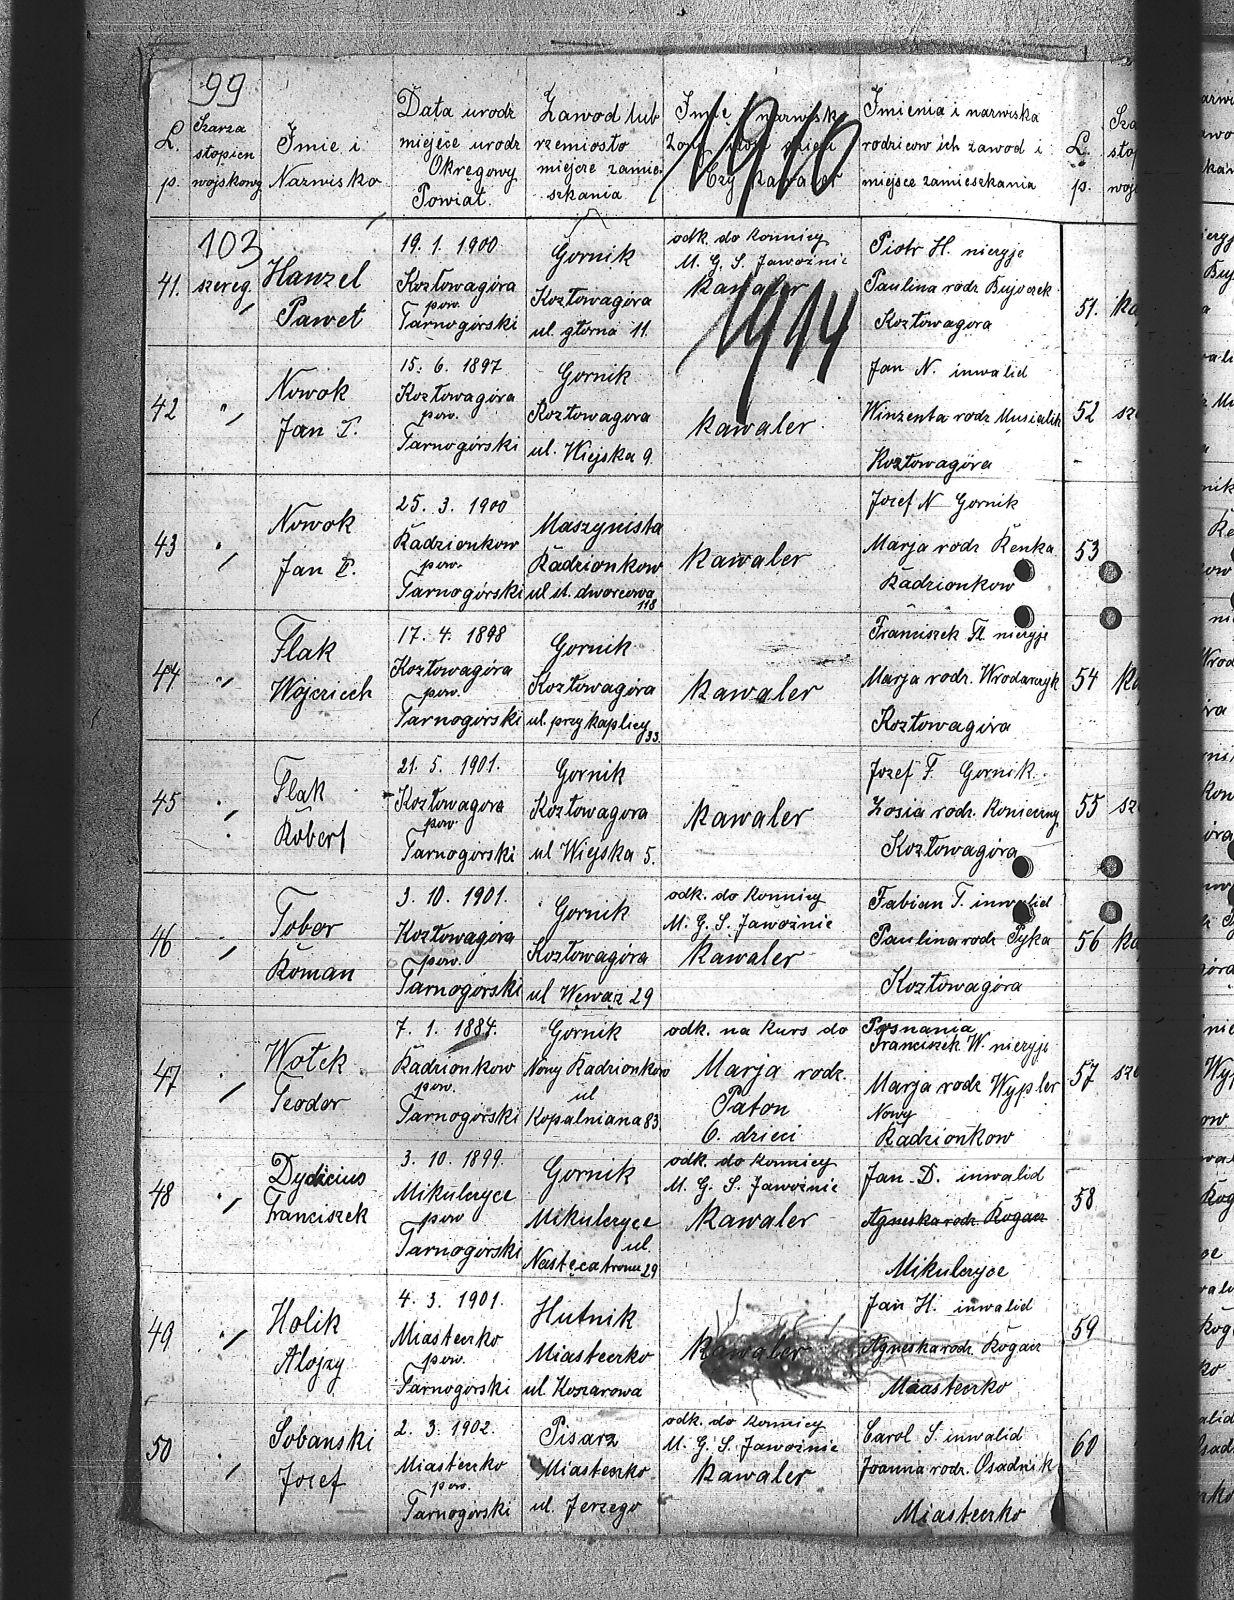 99
L. p.
Szarza stopien wojskowy
Imie i Nazwisko
Data urodz miejsce urodz Okręgowy Powiat.
Zawod lub rzemiosło miejsce zamieszkania
Imie i nazwisko Żony ilość dzieci Czy kawaler
Imienia i nazwiska rodzicow ich zawod i miejsce zamieszkania
L. p.
1910
103
1914
41. szereg. Hanzel Paweł
19. 1. 1900 Kozłowagóra pow. Tarnogórski
Gornik Kozłowagóra ul. głorna 11.
odk. do konnicy M. G. S. Jawoźnie kawaler
Piotr H. nieżyje Paulina rodz Bujoczek Kozłowagora
51.
42 " Nowok Jan I.
15. 6. 1897 Kozłowagóra pow. Tarnogórski
Gornik Kozłowagora ul. Wiejska 9.
kawaler
Jan N. inwalid Winzenta rodz Musialik Kozłowagóra
52
43 " Nowok Jan II.
25. 3. 1900 Radzionkow pow. Tarnogórski
Maszynista Radzionkow ul st. dworcowa 118
kawaler
Jozef N Gornik Marja rodz Kenka Radzionkow
53
44 " Flak Wojciech
17. 4. 1898 Kozłowagóra pow. Tarnogórski
Gornik Kozłowagóra ul. przy kaplicy 33.
kawaler
Franciszek Fl. nieżyje Marja rodz. Wrodarczyk Kozłowagóra
54
45 " Flak Robert
21. 5. 1901. Kozłowagora pow. Tarnogórski
Gornik Kozłowagora ul Wiejska 5.
kawaler
Jozef F. Gornik. Zosia rodz. Konieczny Kozłowagóra
55
46 " Tobor Roman
3. 10. 1901. Kozłowagóra pow. Tarnogórski
Gornik Kozłowagóra ul Wewaz 29
odk. do konnicy M. G. S. Jawoźnie kawaler
Fabian T. inwalid Paulina rodz Pyka Kozłowagóra
56
47 " Wołek Teodor
7. 1. 1884. Radzionkow pow. Tarnogórski
Gornik Nowy Radzionkow ul Kopalniana 83
odk. na kurs do Poznania
Marja rodz. Paton 6. dzieci
Franciszek W. nieżyje Marja rodz Wypler Nowy Radzionkow
57
48 " Dydzicius Franciszek
3. 10. 1899. Mikulczyce pow Tarnogórski
Gornik Mikulczyce ul. 29
odk. do konnicy M. G. S. Jawoźnie kawaler
Jan D. inwalid Agneska rodz. Rogacz Mikulczyce
58
49 " Holik Alojzy
4. 3. 1901. Miasteczko pow. Tarnogórski
Hutnik Miasteczko ul Koszarowa
kawaler
Jan H. inwalid Agneska rodz. Rogacz Miasteczko
59
50 " Sobanski Jozef
2. 3. 1902. Miasteczko pow. Tarnogórski
Pisarz Miasteczko ul. Jerzego
odk. do konnicy M. G. S. Jawoźnie kawaler
Carol S. inwalid Joanna rodz. Osadnik Miasteczko
60